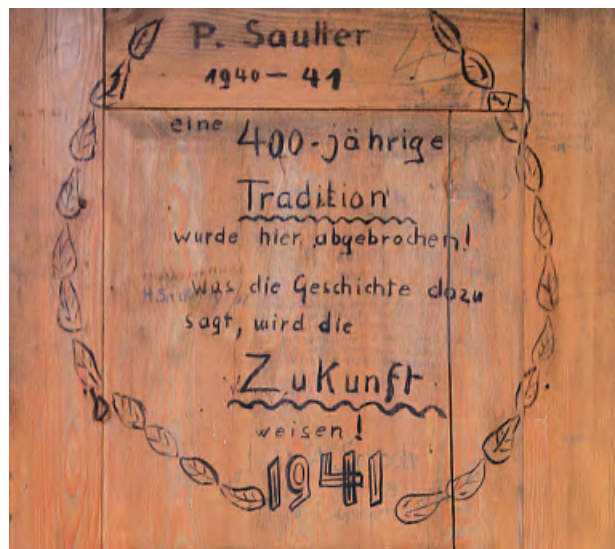 P. Sautter
1940 - 41
eine 400-jährige
Tradition
wurde hier abgebrochen!
was die Geschichte dazu
sagt, wird die
Zukunft
weisen!
1941